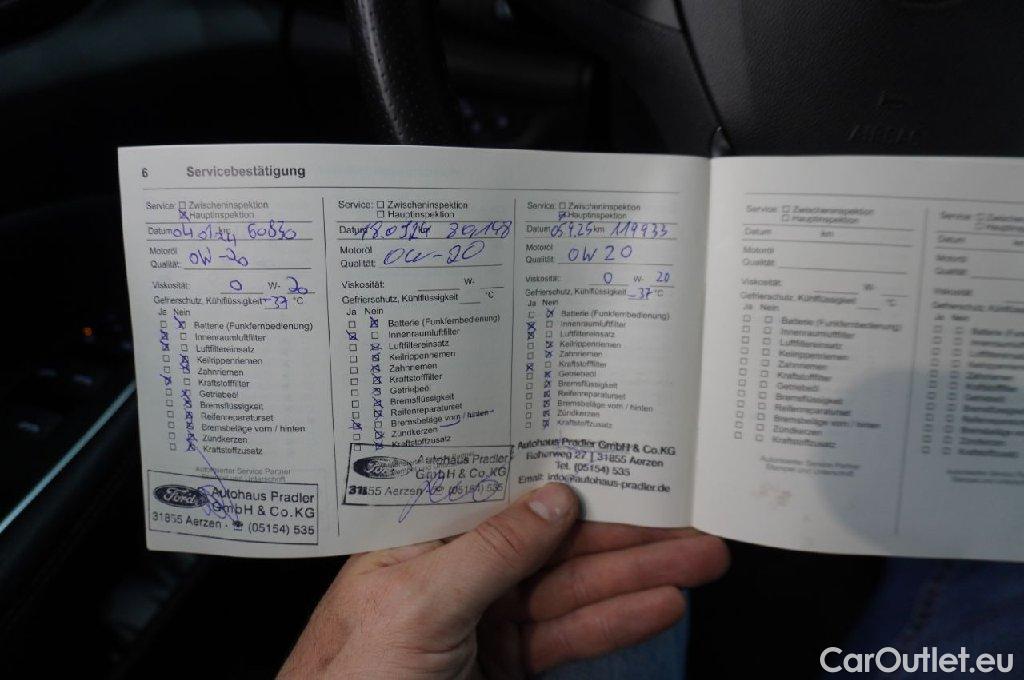 6 Servicebestätigung
Service: Zwischeninspektion
Hauptinspektion
Datum 04 km 60830
Motoröl
Qualität: 0W-20
Viskosität: 0 W- 20
Gefrierschutz, Kühlflüssigkeit -37 °C
Ja Nein
Batterie (Funkfernbedienung)
Innenraumluftfilter
Luftfiltereinsatz
Keilrippenriemen
Zahnriemen
Kraftstofffilter
Getriebeöl
Bremsflüssigkeit
Reifenreparaturset
Bremsbeläge vorn / hinten
Zündkerzen
Kraftstoffzusatz
Autorisierter Service Partner
Ford Autohaus Pradler
GmbH & Co.KG
31855 Aerzen · ☎ (05154) 535
Service: Zwischeninspektion
Hauptinspektion
Datum
Motoröl
Qualität: 0W-20
Viskosität: W-
Gefrierschutz, Kühlflüssigkeit °C
Ja Nein
Batterie (Funkfernbedienung)
Innenraumluftfilter
Luftfiltereinsatz
Keilrippenriemen
Zahnriemen
Kraftstofffilter
Getriebeöl
Bremsflüssigkeit
Reifenreparaturset
Bremsbeläge vorn / hinten
Zündkerzen
Kraftstoffzusatz
Ford Autohaus Pradler
GmbH & Co.KG
31855 Aerzen ☎ (05154) 535
Service: Zwischeninspektion
Hauptinspektion
Datum km 119933
Motoröl
Qualität: 0W20
Viskosität: 0 W- 20
Gefrierschutz, Kühlflüssigkeit -37 °C
Ja Nein
Batterie (Funkfernbedienung)
Innenraumluftfilter
Luftfiltereinsatz
Keilrippenriemen
Zahnriemen
Kraftstofffilter
Getriebeöl
Bremsflüssigkeit
Reifenreparaturset
Bremsbeläge vorn / hinten
Zündkerzen
Kraftstoffzusatz
Autohaus Pradler GmbH & Co.KG
Reherweg 27 | 31855 Aerzen
Tel. (05154) 535
Email: info@autohaus-pradler.de
Service: Zwischeninspektion
Hauptinspektion
Datum km
Motoröl
Qualität:
Viskosität: W-
Gefrierschutz, Kühlflüssigkeit °C
Ja Nein
Batterie (Funkfernbedienung)
Innenraumluftfilter
Luftfiltereinsatz
Keilrippenriemen
Zahnriemen
Kraftstofffilter
Getriebeöl
Bremsflüssigkeit
Reifenreparaturset
Bremsbeläge vorn / hinten
Zündkerzen
Kraftstoffzusatz
Autorisierter Service Partner
Stempel und Unterschrift
Service: Zwischeninspektion
Hauptinspektion
Datum
Motoröl
Qualität:
Viskosität:
Ja Nein
AIRBAG
CarOutlet.eu